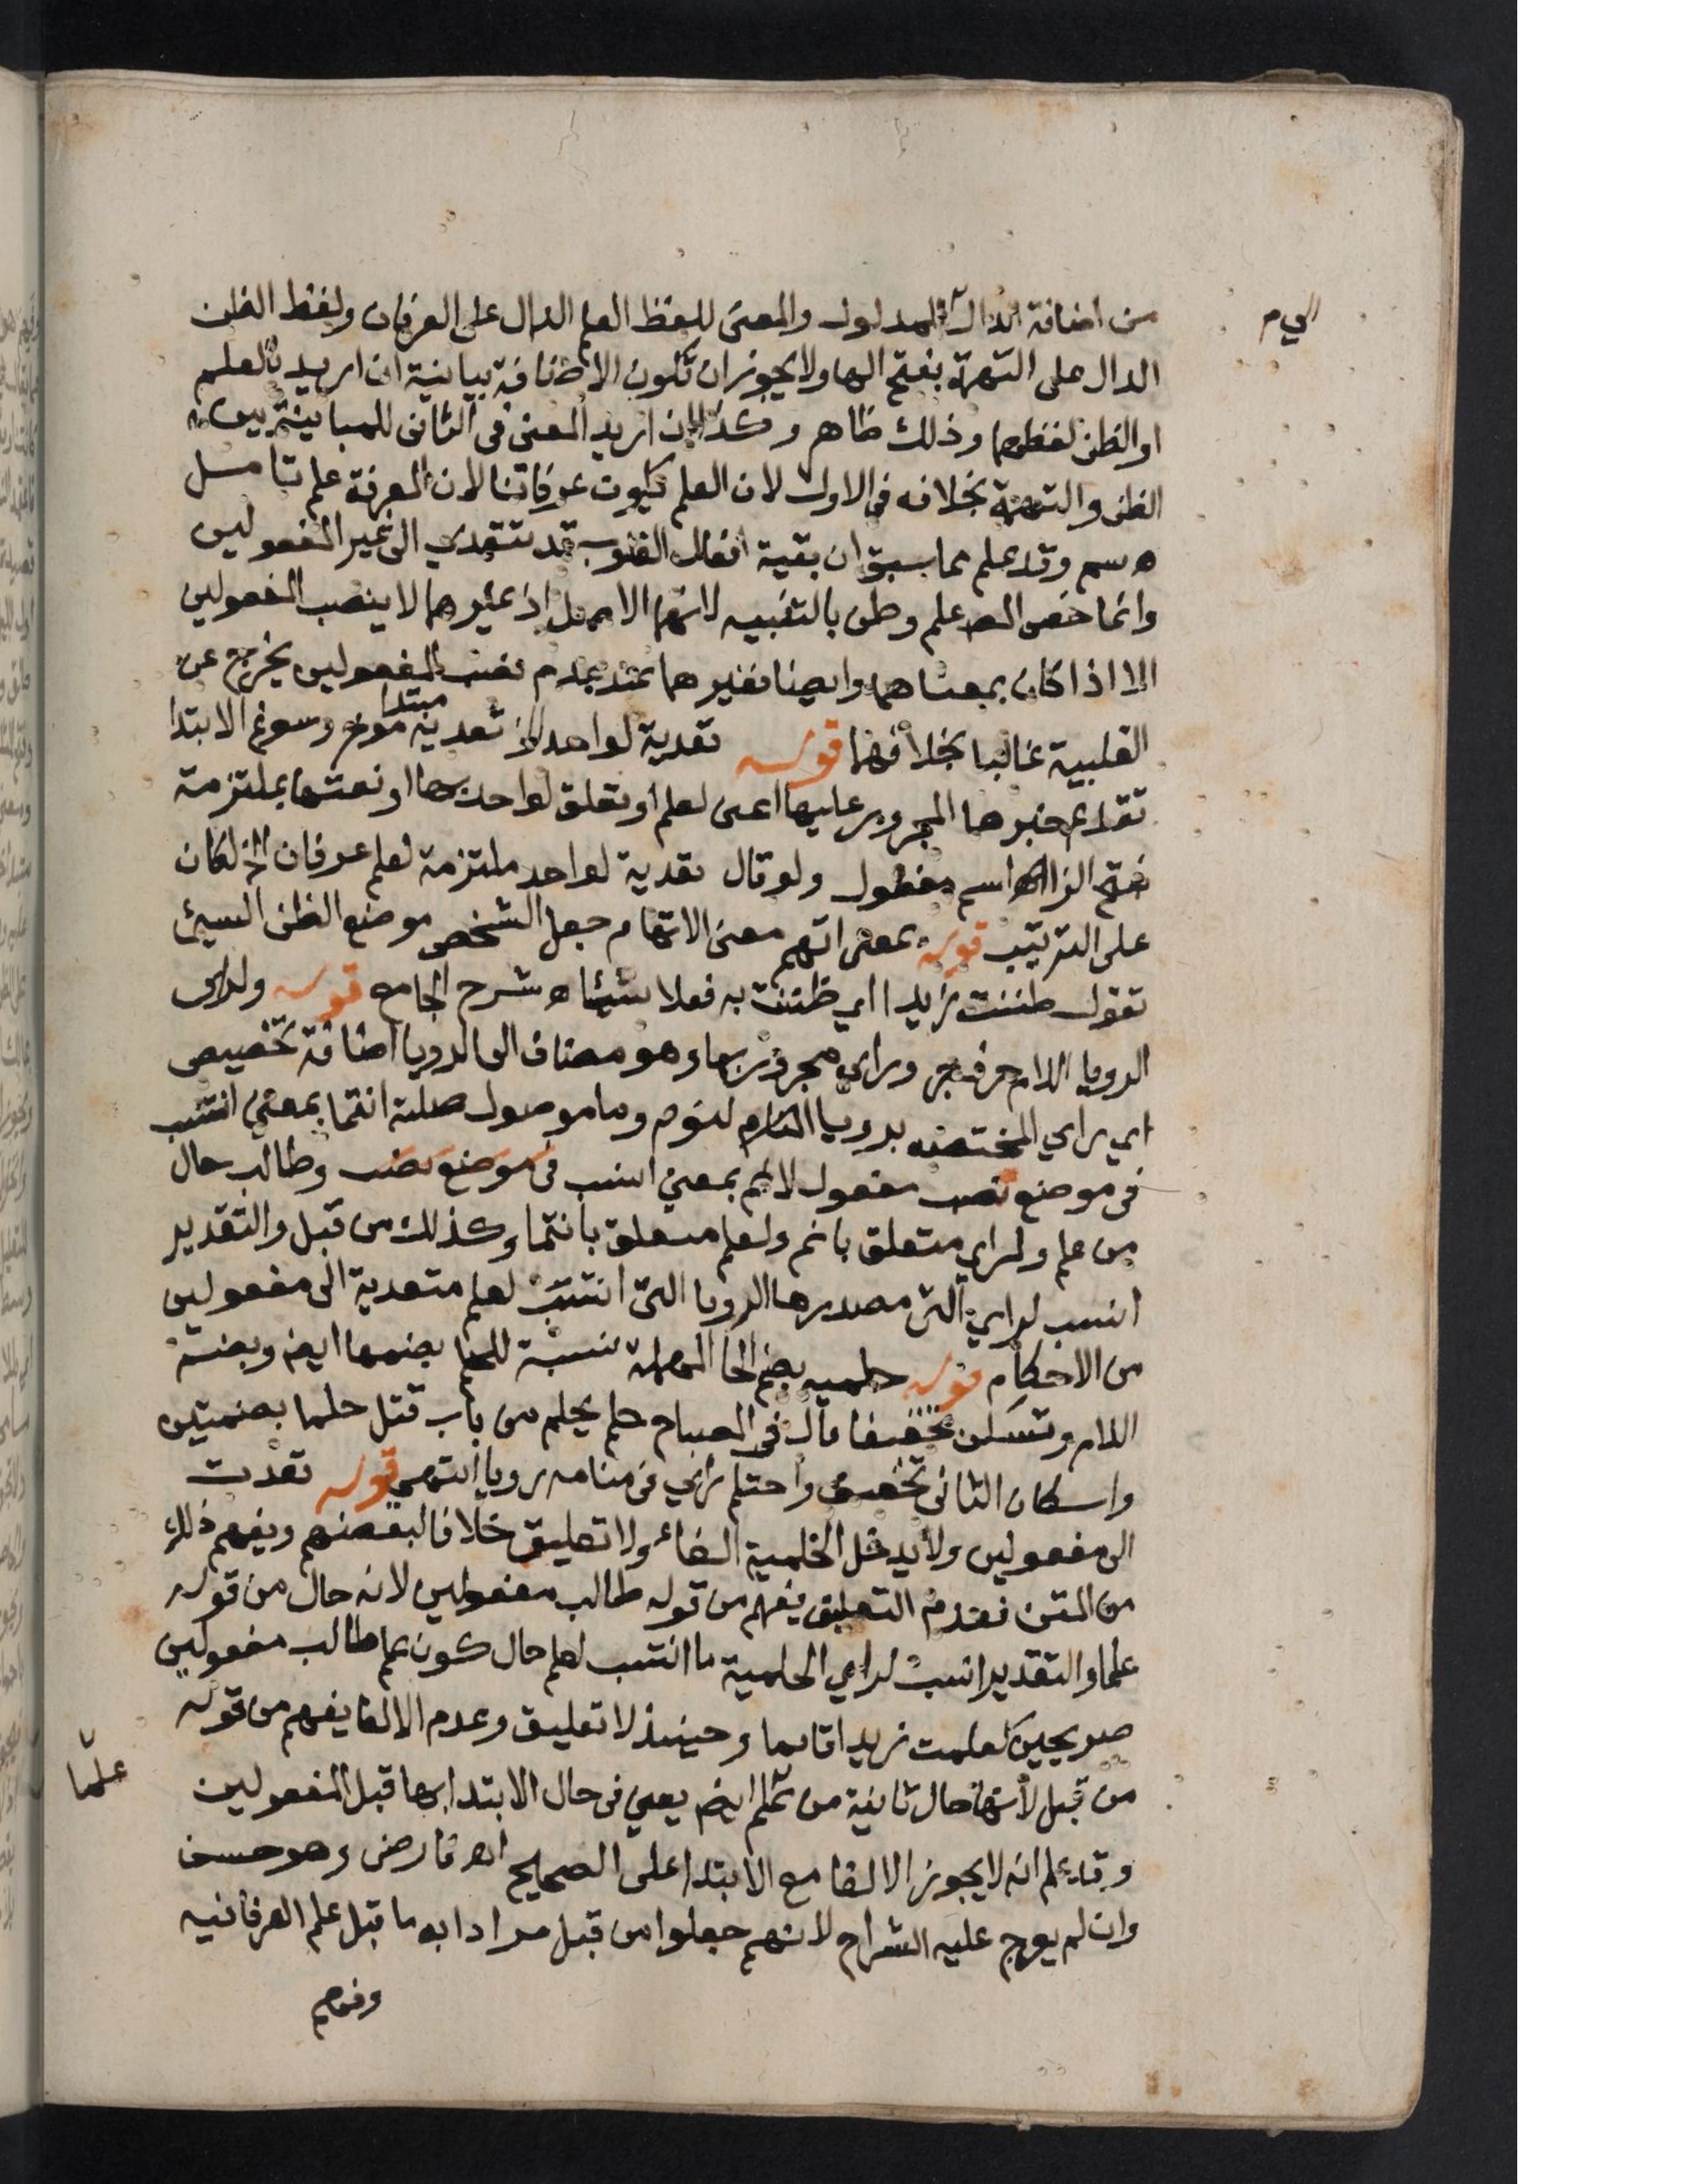 من اضافة الدال للمدلول والمعنى للفظ العلم الدال على العرفان ولفظ الظن
الي م
الدال على التهمة بفتح الها ولا يجوز ان تكون الاضافة بيانية ان اريد بالعلم
او الظن لفظهما وذلك ظاهر وكذا ان اريد المعنى في الثاني للمباينة بين
الظن والتهمة بخلافه في الاول لان العلم يكون عرفانا لان المعرفة علم تامل
ه سم وقد علم مما سبق ان بقية افعال القلوب قد تتعدي الى غير المفعولين
وانما خص المص علم وظن بالتنبيه لانهما الاصل اذ غيرهما لا ينصب المفعولين
الا اذا كان بمعناهما وايضا فغيرهما عند عدم نصب المفعولين يخرج عن
القلبية غالبا بخلافهما قوله تعدية لواحد الخ تعدية مبتدا موخر وسوغ الابتدا
تقديم خبرها المجرور عليها اعنى لعلم او تعلق لواحد بها او نعتها بملتزمة
بفتح الزاي اسم مفعول ولو قال تعدية لواحد ملتزمة لعلم عرفان الخ لكان
على الترتيب قوله بمعنى اتهم معنى الاتهام جعل الشخص موضع الظن السيئ
تقول ظننت زيدا اي ظننت به فعلا سيئا ه شرح الجامع قوله ولراى
الرويا اللام حرف جر وراي مجرور بها وهو مضاف الى الرويا اضافة تخصيص
اي راي المختصه برويا النوم وما موصول صلته انتما بمعنى انتسب
في موضع نصب مفعول لانم بمعنى انسب في موضع نصب وطالب حال
من علم ولراي متعلق بانم ولعلم متعلق بانتما وكذلك من قبل والتقدير
انسب لراي التي مصدرها الرويا التي انتسب لعلم متعدية الى مفعولين
من الاحكام قوله حلميه بضم الحا المهملة نسبة للحلم بضمها ايض وبضم
اللام وتسكن تخفيفا قال في المصباح حلم يحلم من باب قتل حلما بضمتين
واسكان الثاني تخفيف واحتلم راي في منامه رويا انتهى قوله تعدت
الى مفعولين ولا يدخل الحلمية الغاء ولا تعليق خلافا لبعضهم ويفهم ذلك
من المتن فعدم التعليق يفهم من قوله طالب مفعولين لانه حال من قوله
علما والتقدير انسب لراي الحلمية ما انتسب لعلم حال كون علم طالب مفعولين
صريحين كعلمت زيدا قائما وحينئذ لا تعليق وعدم الالغا يفهم من قوله
من قبل لانها حال ثانية من علم ايض يعني في حال الابتدا بها قبل المفعولين
علما
وقد علم انه لا يجوز الالغا مع الابتدا على الصحيح اه فارضى وهو حسن
وان لم يعرج عليه الشراح لانهم جعلوا من قبل مرادا به ما قبل علم العرفانيه